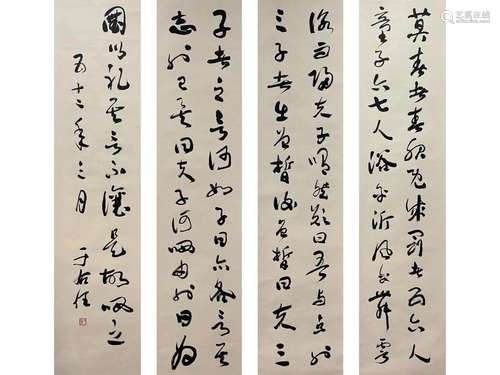 莫春者春服既成冠者五六人
童子六七人浴乎沂風乎舞雩
詠而歸夫子喟然歎曰吾與點也
三子者出曾皙後曾皙曰夫三
子者之言何如子曰亦各言其
志也已矣曰夫子何哂由也曰為
國以禮其言不讓是故哂之
五十二年三月
于右任
艺狐在线